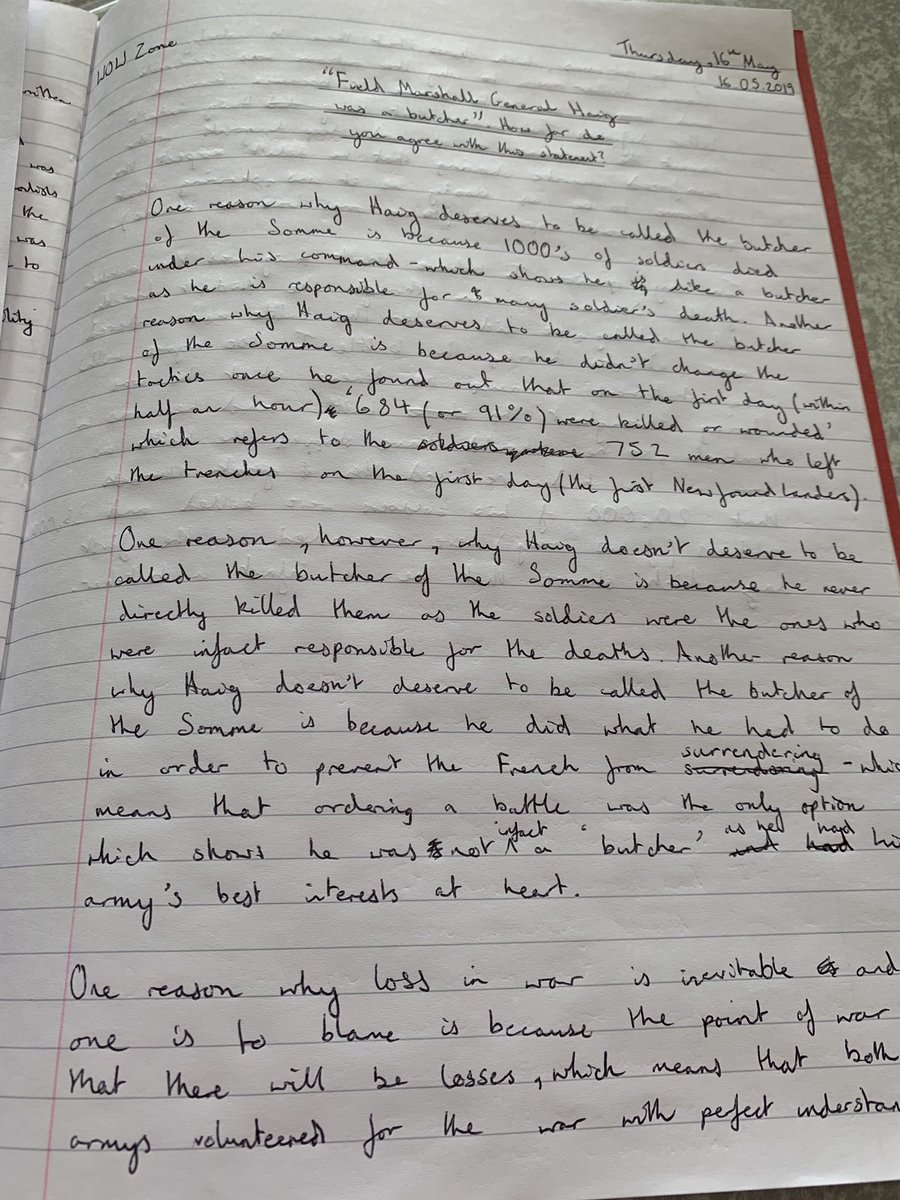 WOW Zone
Thursday, 16th May
16.05.2019
"Field Marshall General Haig
was a butcher". How far do
you agree with this statement?
One reason why Haig deserves to be called the butcher
of the Somme is because 1000's of soldiers died
under his command - which shows he is like a butcher
as he is responsible for many soldier's death. Another
reason why Haig deserves to be called the butcher
of the Somme is because he didn't change the
tactics once he found out that on the first day (within
half an hour) '684 (or 91%) were killed or wounded'
which refers to the soldiers 752 men who left
the trenches on the first day (the first Newfoundlanders).
One reason, however, why Haig doesn't deserve to be
called the butcher of the Somme is because he never
directly killed them as the soldiers were the ones who
were infact responsible for the deaths. Another reason
why Haig doesn't deserve to be called the butcher of
the Somme is because he did what he had to do
in order to prevent the French from surrendering - whic
means that ordering a battle was the only option
which shows he was not infact a 'butcher' as he had hi
army's best interests at heart.
One reason why loss in war is inevitable and
one is to blame is because the point of war
that there will be losses, which means that both
armys volunteered for the war with perfect understan
written
was
the
was
to